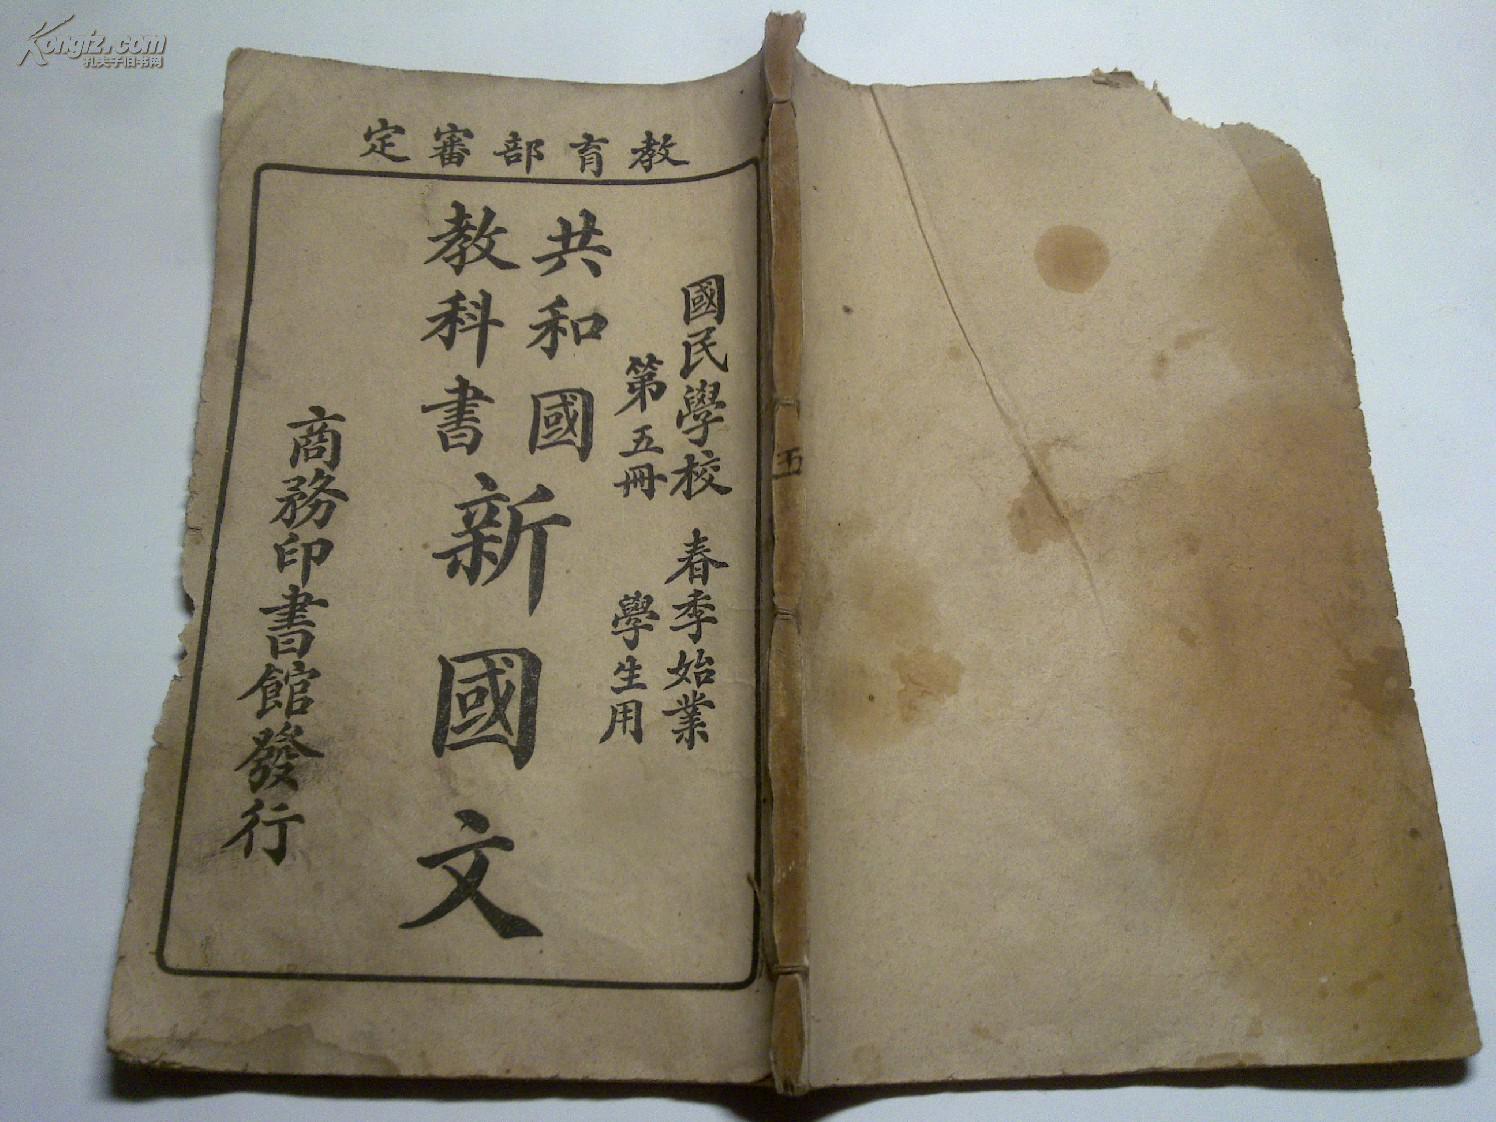 Kongfz.com
孔夫子旧书网
教育部審定
國民學校 春季始業
第五冊 學生用
共和國
教科書
新國文
商務印書館發行
五